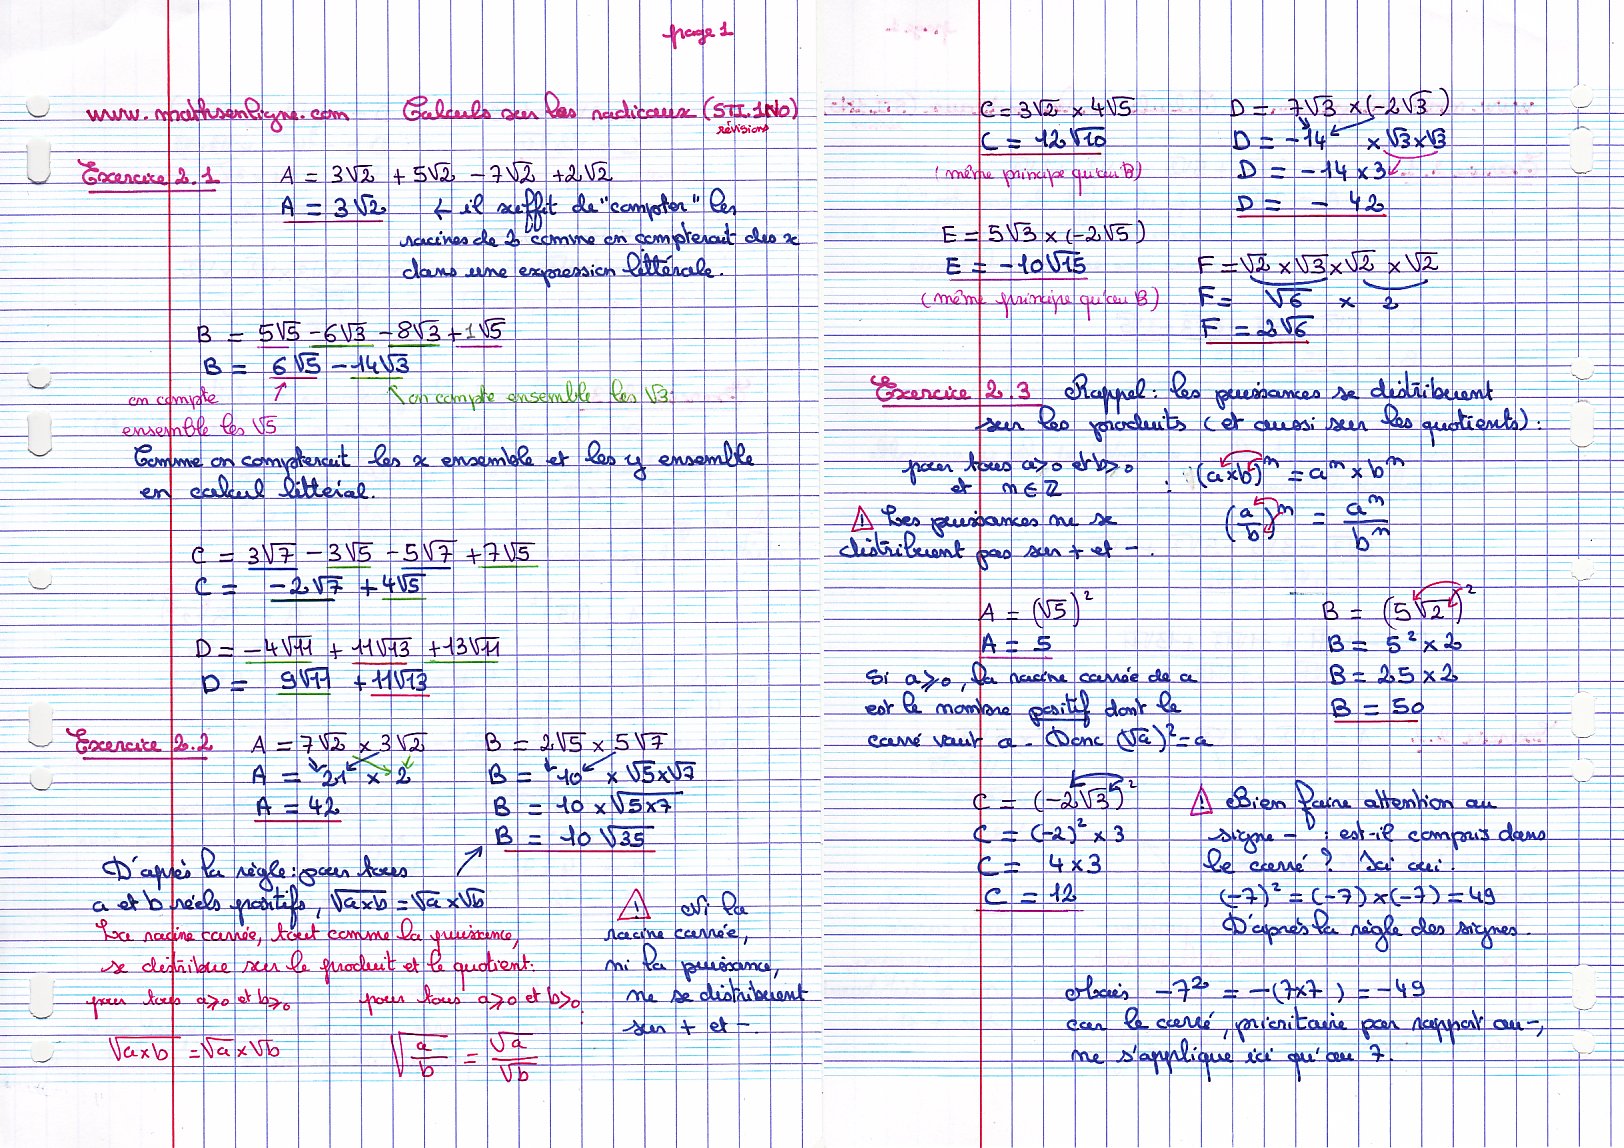 page 1
www.mathsenligne.com Calculs sur les radicaux (STI 1N0)
révisions
Exercice 2.1 A = 3√2 + 5√2 - 7√2 + 2√2
A = 3√2 ← il suffit de "compter" les
racines de 2 comme on compterait des x
dans une expression littérale.
B = 5√5 - 6√3 - 8√3 + 1√5
B = 6√5 - 14√3
on compte ensemble les √5
on compte ensemble les √3.
Comme on compterait les x ensemble et les y ensemble
en calcul littéral.
C = 3√7 - 3√5 - 5√7 + 7√5
C = -2√7 + 4√5
D = -4√11 + 11√13 + 13√11
D = 9√11 + 11√13
Exercice 2.2 A = 7√2 × 3√2
A = 21 × 2
A = 42
B = 2√5 × 5√7
B = 10 × √5×√7
B = 10 × √5×7
B = 10√35
D'après la règle : pour tous
a et b réels positifs, √a×b = √a × √b
La racine carrée, tout comme la puissance,
se distribue sur le produit et le quotient:
pour tous a⩾0 et b⩾0 pour tous a⩾0 et b>0
√a×b = √a × √b √a/b = √a/√b
⚠ Ni la
racine carrée,
ni la puissance,
ne se distribuent
sur + et -.
C = 3√2 × 4√5
C = 12√10
(même principe qu'au B)
D = 7√3 × (-2√3)
D = -14 × √3×√3
D = -14 × 3
D = - 42
E = 5√3 × (-2√5)
E = -10√15
(même principe qu'au B)
F = √2 × √3 × √2 × √2
F = √6 × 2
F = 2√6
Exercice 2.3 Rappel : les puissances se distribuent
sur les produits (et aussi sur les quotients) :
pour tous a>0 et b>0
et n ∈ ℤ : (a×b)ⁿ = aⁿ × bⁿ
(a/b)ⁿ = aⁿ/bⁿ
⚠ Les puissances ne se
distribuent pas sur + et -.
A = (√5)²
A = 5
Si a⩾0, la racine carrée de a
est le nombre positif dont le
carré vaut a. Donc (√a)² = a
B = (5√2)²
B = 5² × 2
B = 25 × 2
B = 50
C = (-2√3)²
C = (-2)² × 3
C = 4 × 3
C = 12
⚠ Bien faire attention au
signe - : est-il compris dans
le carré ? Ici oui.
(-7)² = (-7) × (-7) = 49
D'après la règle des signes.
Mais -7² = -(7×7) = -49
car le carré, prioritaire par rapport au -,
ne s'applique ici qu'au 7.